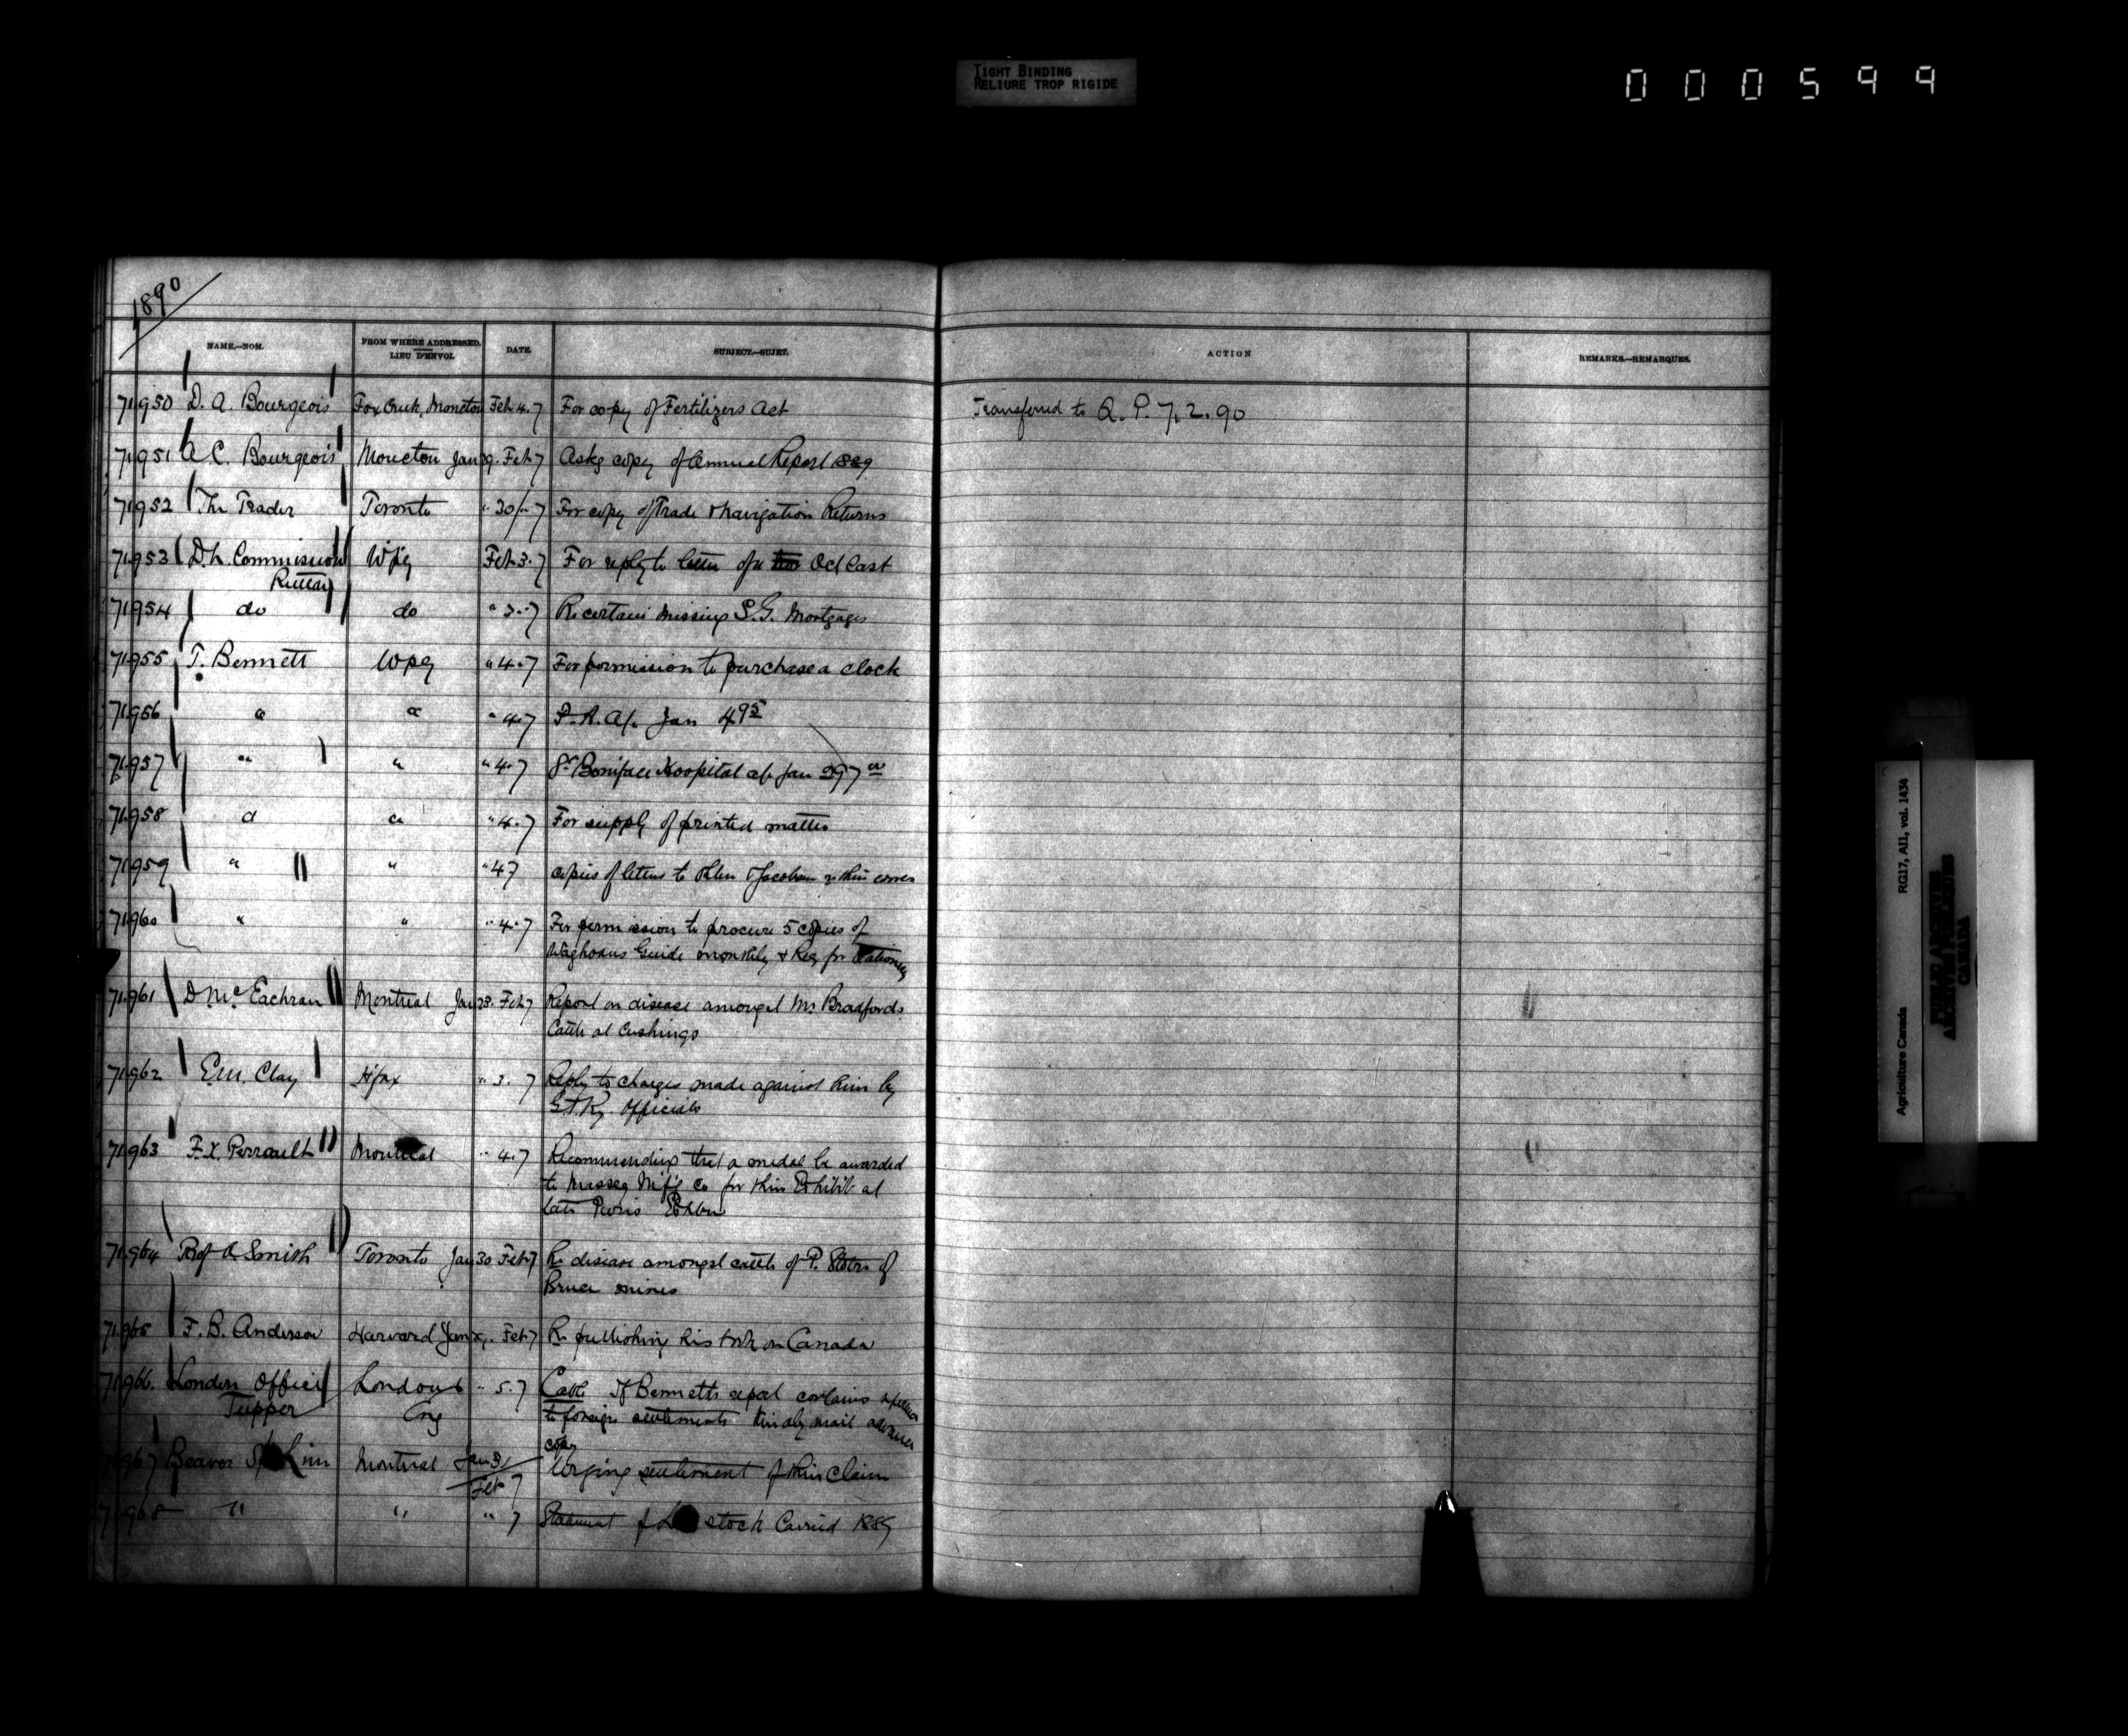 TIGHT BINDING
RELIURE TROP RIGIDE
000599
1890
NAME.—NOM. FROM WHERE ADDRESSED. LIEU D'ENVOI. DATE. SUBJECT.—SUJET. ACTION REMARKS.—REMARQUES.
71950 D. A. Bourgeois Fox Creek, Moncton Feb 4. 7 For copy of Fertilizers Act Transferred to Q. P. 7. 2. 90
71951 A C. Bourgeois Moncton Jan 29. Feb 7 Asks copy of Annual Report 1889
71952 The Trader Toronto " 30/" 7 For copy of Trade & Navigation Returns
71953 D. L. Commission Wpg Feb 3. 7 For reply to letter of Oct last
Ruttan
71954 do do " 3. 7 Re certain missing S.G. Mortgages
71955 T. Bennett Wpg " 4. 7 For permission to purchase a clock
71956 " " " 4. 7 P. R. A/c Jan 4 95
71957 " " " 4. 7 St Boniface Hospital a/c Jan 297
71958 " " " 4. 7 For supply of printed matter
71959 " " " 4 7 copies of letters to Ohlen & Jacobson
71960 " " " 4. 7 For permission to procure 5 copies of
Waghorns Guide monthly & Req for Stationery
71961 D McEachran Montreal Jan 23. Feb 7 Report on disease amongst Mr Bradfords
Cattle at Cushings
71962 E.M. Clay Hfax " 3. 7 Reply to charges made against him by
G.T.Ry. Officials
71963 F. X. Perrault Montreal " 4. 7 Recommending that a medal be awarded
to Massey Mfg Co for their Exhibit at
late Paris Exhbn
71964 Prof A Smith Toronto Jan 30 Feb 7 Re disease amongst cattle of P. of
Bruce mines
71965 F. B. Anderson Harvard Jan Feb 7 Re publishing his book on Canada
71966. London Office London " 5. 7 Cable If Bennetts report contains reference
Tupper Eng to foreign settlements kindly mail advance
copy
71967 Beaver SS Line Montreal Jan 31/ Urging settlement of their claim
Feb 7
71968 " " " 7 Statement of stock Carried 1889
Agriculture Canada RG17, AI1, vol. 1434
PUBLIC ARCHIVES
ARCHIVES PUBLIQUES
CANADA